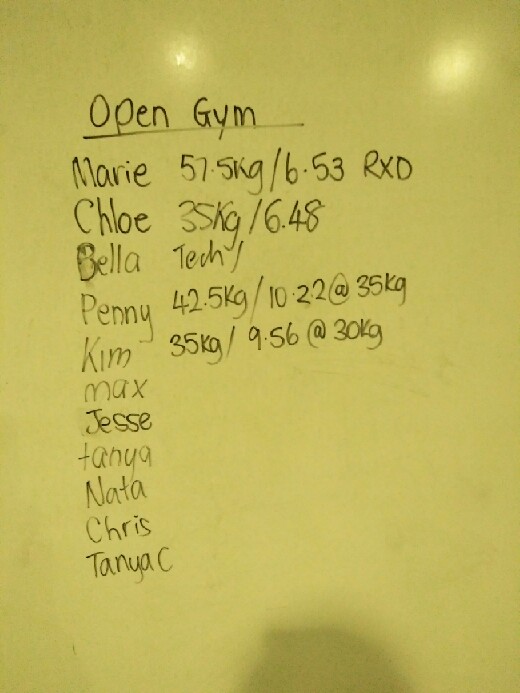 Open Gym
Marie 57.5kg/6.53 RXD
Chloe 35kg/6.48
Bella Tech/
Penny 42.5kg/10.22@35kg
Kim 35kg/ 9.56 @ 30kg
max
Jesse
tanya
Nata
Chris
Tanya C